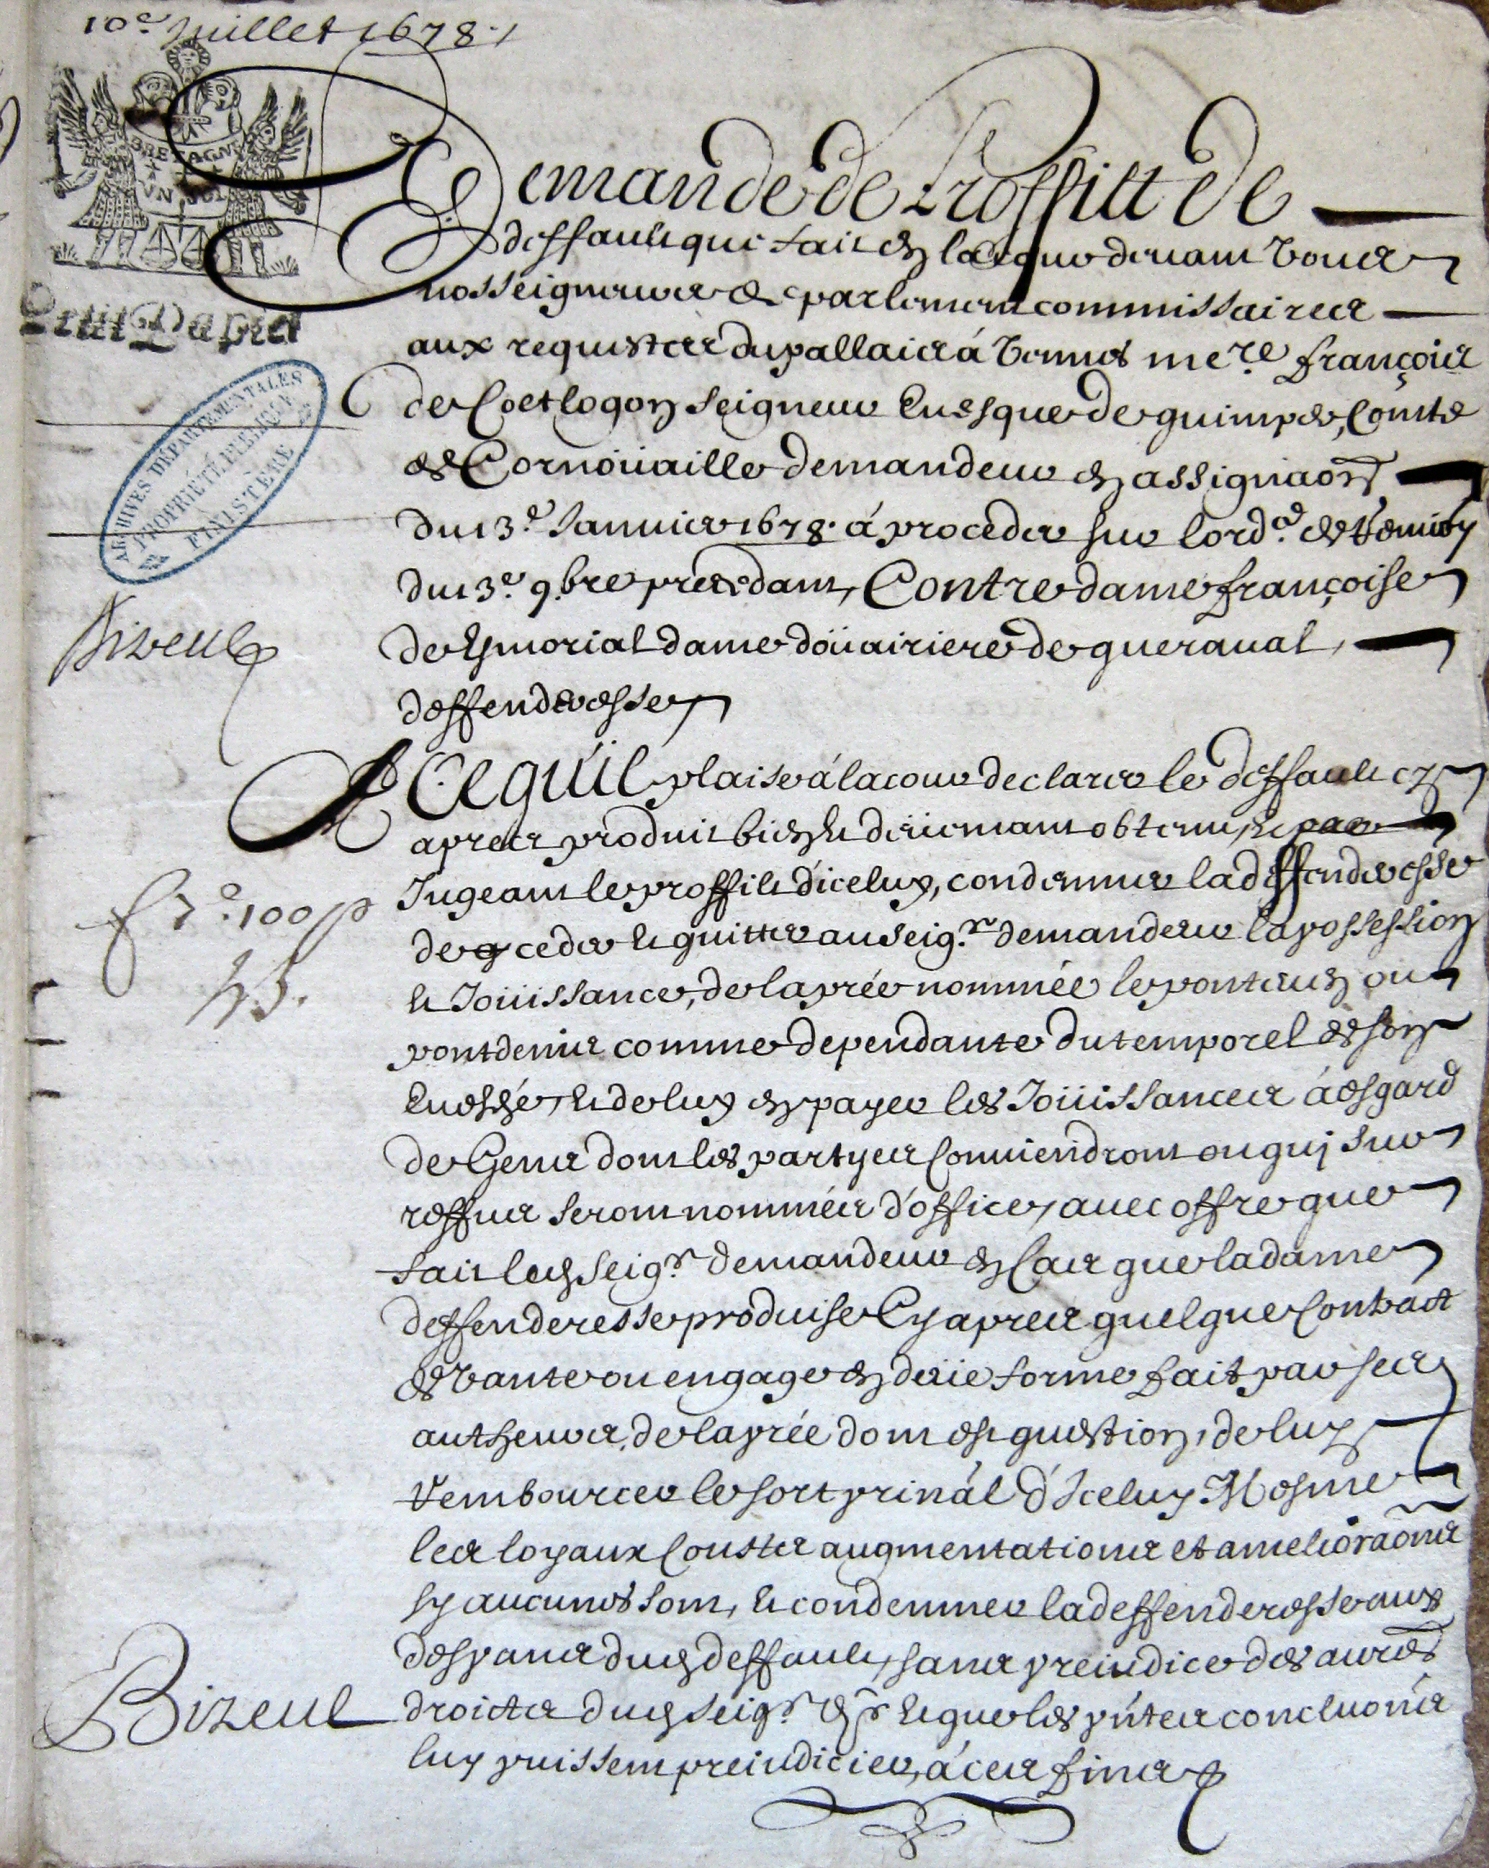 10e Juillet 1678
BRETAGNE
VN SOL
Petit Papier
ARCHIVES DÉPARTEMENTALES
PROPRIÉTÉ PUBLIQUE
FINISTÈRE
Demande de Proffitt de
deffault que fait en la cour devant vous
nosseigneurs de parlement commissaires
aux requestes du pallais à Rennes me.re françois
de Coetlogon seigneur Evesque de quimper, Comte
de Cornoüaille demandeur en assignaon
du 13.e Janvier 1678. à proceder sur l'ord.ce de Renvoy
du 13.e 9.bre precedant, Contre dame françoise
de dame doüairiere de queraval,
deffenderesse
Bizeul
A Ce qu'il plaise à la cour declarer le deffault cy
apres produit bien et deüemant obtenu, et par
Jugeant le proffilt d'iceluy, condemner la deffenderesse
de ceder et quitter au seig.r demandeur la possession
et Joüissance, de la prée nommée le ou
comme dependante du temporel de son
Evesché, et de luy en payer les Joüissances à esgard
de Gens dont les partyes Conviendront ou quy sur
reffus seront nommés d'office, avec offre que
fait led seig.r demandeur en Cas que la dame
deffenderesse produise Cy apres quelque Contract
de vante ou engage en deüe forme fait par ses
autheurs, de la prée dont est question, de luy
Rembourcer le sort prinâl d'Iceluy Mesme
les loyaux Coustes augmentations et amelioraõns
sy aucunes sont, et condemner la deffenderesse aux
despans dud deffault, sans preiudice des autres
droicts dud seig.r et que les pñtes concluõns
luy puissent preiudicier, à ces fins
100
Bizeul